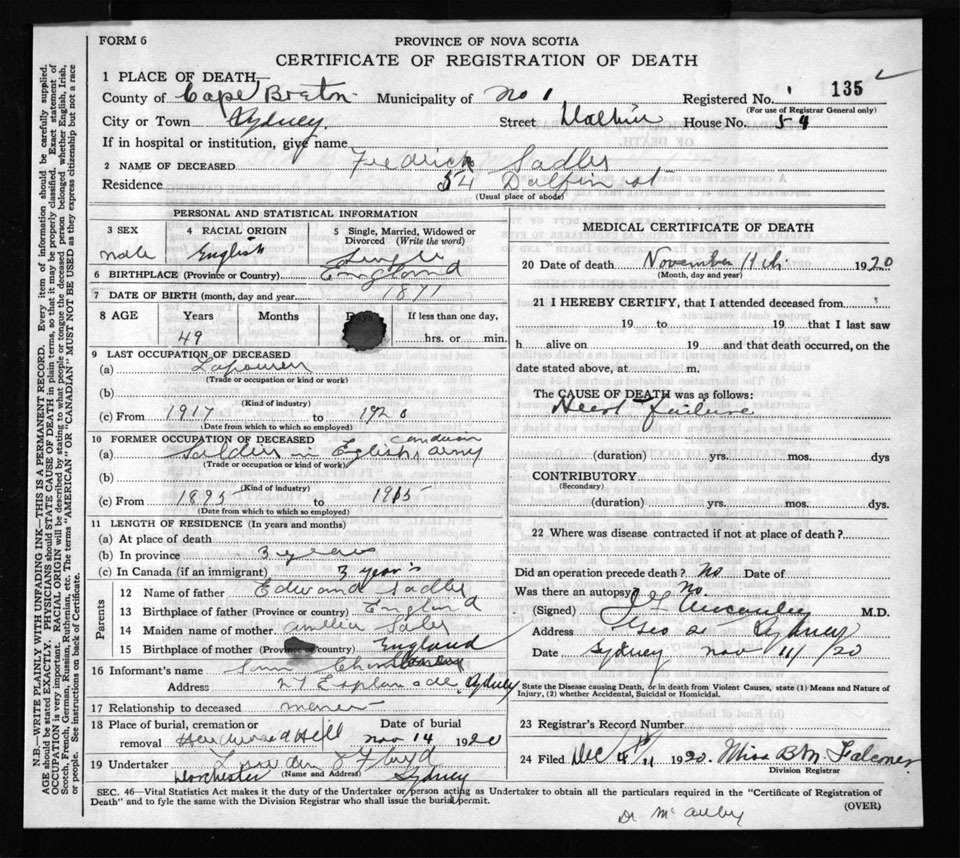 FORM 6
PROVINCE OF NOVA SCOTIA
CERTIFICATE OF REGISTRATION OF DEATH
135
1 PLACE OF DEATH—
County of Cape Breton Municipality of No 1 Registered No.
(For use of Registrar General only)
City or Town Sydney. Street House No. 54
If in hospital or institution, give name
2 NAME OF DECEASED Fredrick Sadler
Residence 54 Dalfin st
(Usual place of abode)
PERSONAL AND STATISTICAL INFORMATION
3 SEX
male
4 RACIAL ORIGIN
English
5 Single, Married, Widowed or Divorced (Write the word)
Single
6 BIRTHPLACE (Province or Country) England
7 DATE OF BIRTH (month, day and year 1871
8 AGE Years Months If less than one day,
49 hrs. or min.
9 LAST OCCUPATION OF DECEASED
(a)
(Trade or occupation or kind or work)
(b)
(Kind of industry)
(c) From 1917 to 1920
(Date from which to which so employed)
10 FORMER OCCUPATION OF DECEASED
(a) Soldier in English army
(Trade or occupation or kind or work)
(b)
(Kind of industry)
(c) From 1895 to 1915
(Date from which to which so employed)
11 LENGTH OF RESIDENCE (In years and months)
(a) At place of death
(b) In province 3 years
(c) In Canada (if an immigrant) 3 year's
Parents
12 Name of father Edward Sadler
13 Birthplace of father (Province or country) England
14 Maiden name of mother Amelia
15 Birthplace of mother (Province or country) England
16 Informant's name Sam
Address 27 Esplanade, Sydney
17 Relationship to deceased
18 Place of burial, cremation or removal Hardwood Hill
Date of burial Nov 14 1920
19 Undertaker
(Name and Address)
Dorchester Sydney
MEDICAL CERTIFICATE OF DEATH
20 Date of death November 11th 1920
(Month, day and year)
21 I HEREBY CERTIFY, that I attended deceased from
19 to 19 that I last saw
h alive on 19 and that death occurred, on the
date stated above, at m.
The CAUSE OF DEATH was as follows:
Heart failure
(duration) yrs. mos. dys
CONTRIBUTORY
(Secondary)
(duration) yrs. mos. dys.
22 Where was disease contracted if not at place of death?
Did an operation precede death? No Date of
Was there an autopsy No.
(Signed) McAuley M.D.
Address Sydney
Date Sydney Nov 11/20
State the Disease causing Death, or in death from Violent Causes, state (1) Means and Nature of
Injury, (2) whether Accidental, Suicidal or Homicidal.
23 Registrar's Record Number
24 Filed Dec 1920. Miss B M Falconer
Division Registrar
SEC. 46—Vital Statistics Act makes it the duty of the Undertaker or person acting as Undertaker to obtain all the particulars required in the "Certificate of Registration of
Death" and to fyle the same with the Division Registrar who shall issue the burial permit.
(OVER)
Dr McAuley
N.B.—WRITE PLAINLY WITH UNFADING INK—THIS IS A PERMANENT RECORD. Every item of information should be carefully supplied.
AGE should be stated EXACTLY. PHYSICIANS should STATE CAUSE OF DEATH in plain terms, so that it may be properly classified. Exact statement of
OCCUPATION is very important. RACIAL ORIGIN will be described by stating to what people or tongue the deceased person belonged whether English, Irish,
Scotch, French, German, Russian, Ruthenian, etc. The terms "AMERICAN" OR "CANADIAN" MUST NOT BE USED as they express citizenship but not a race
or people. See instructions on back of Certificate.